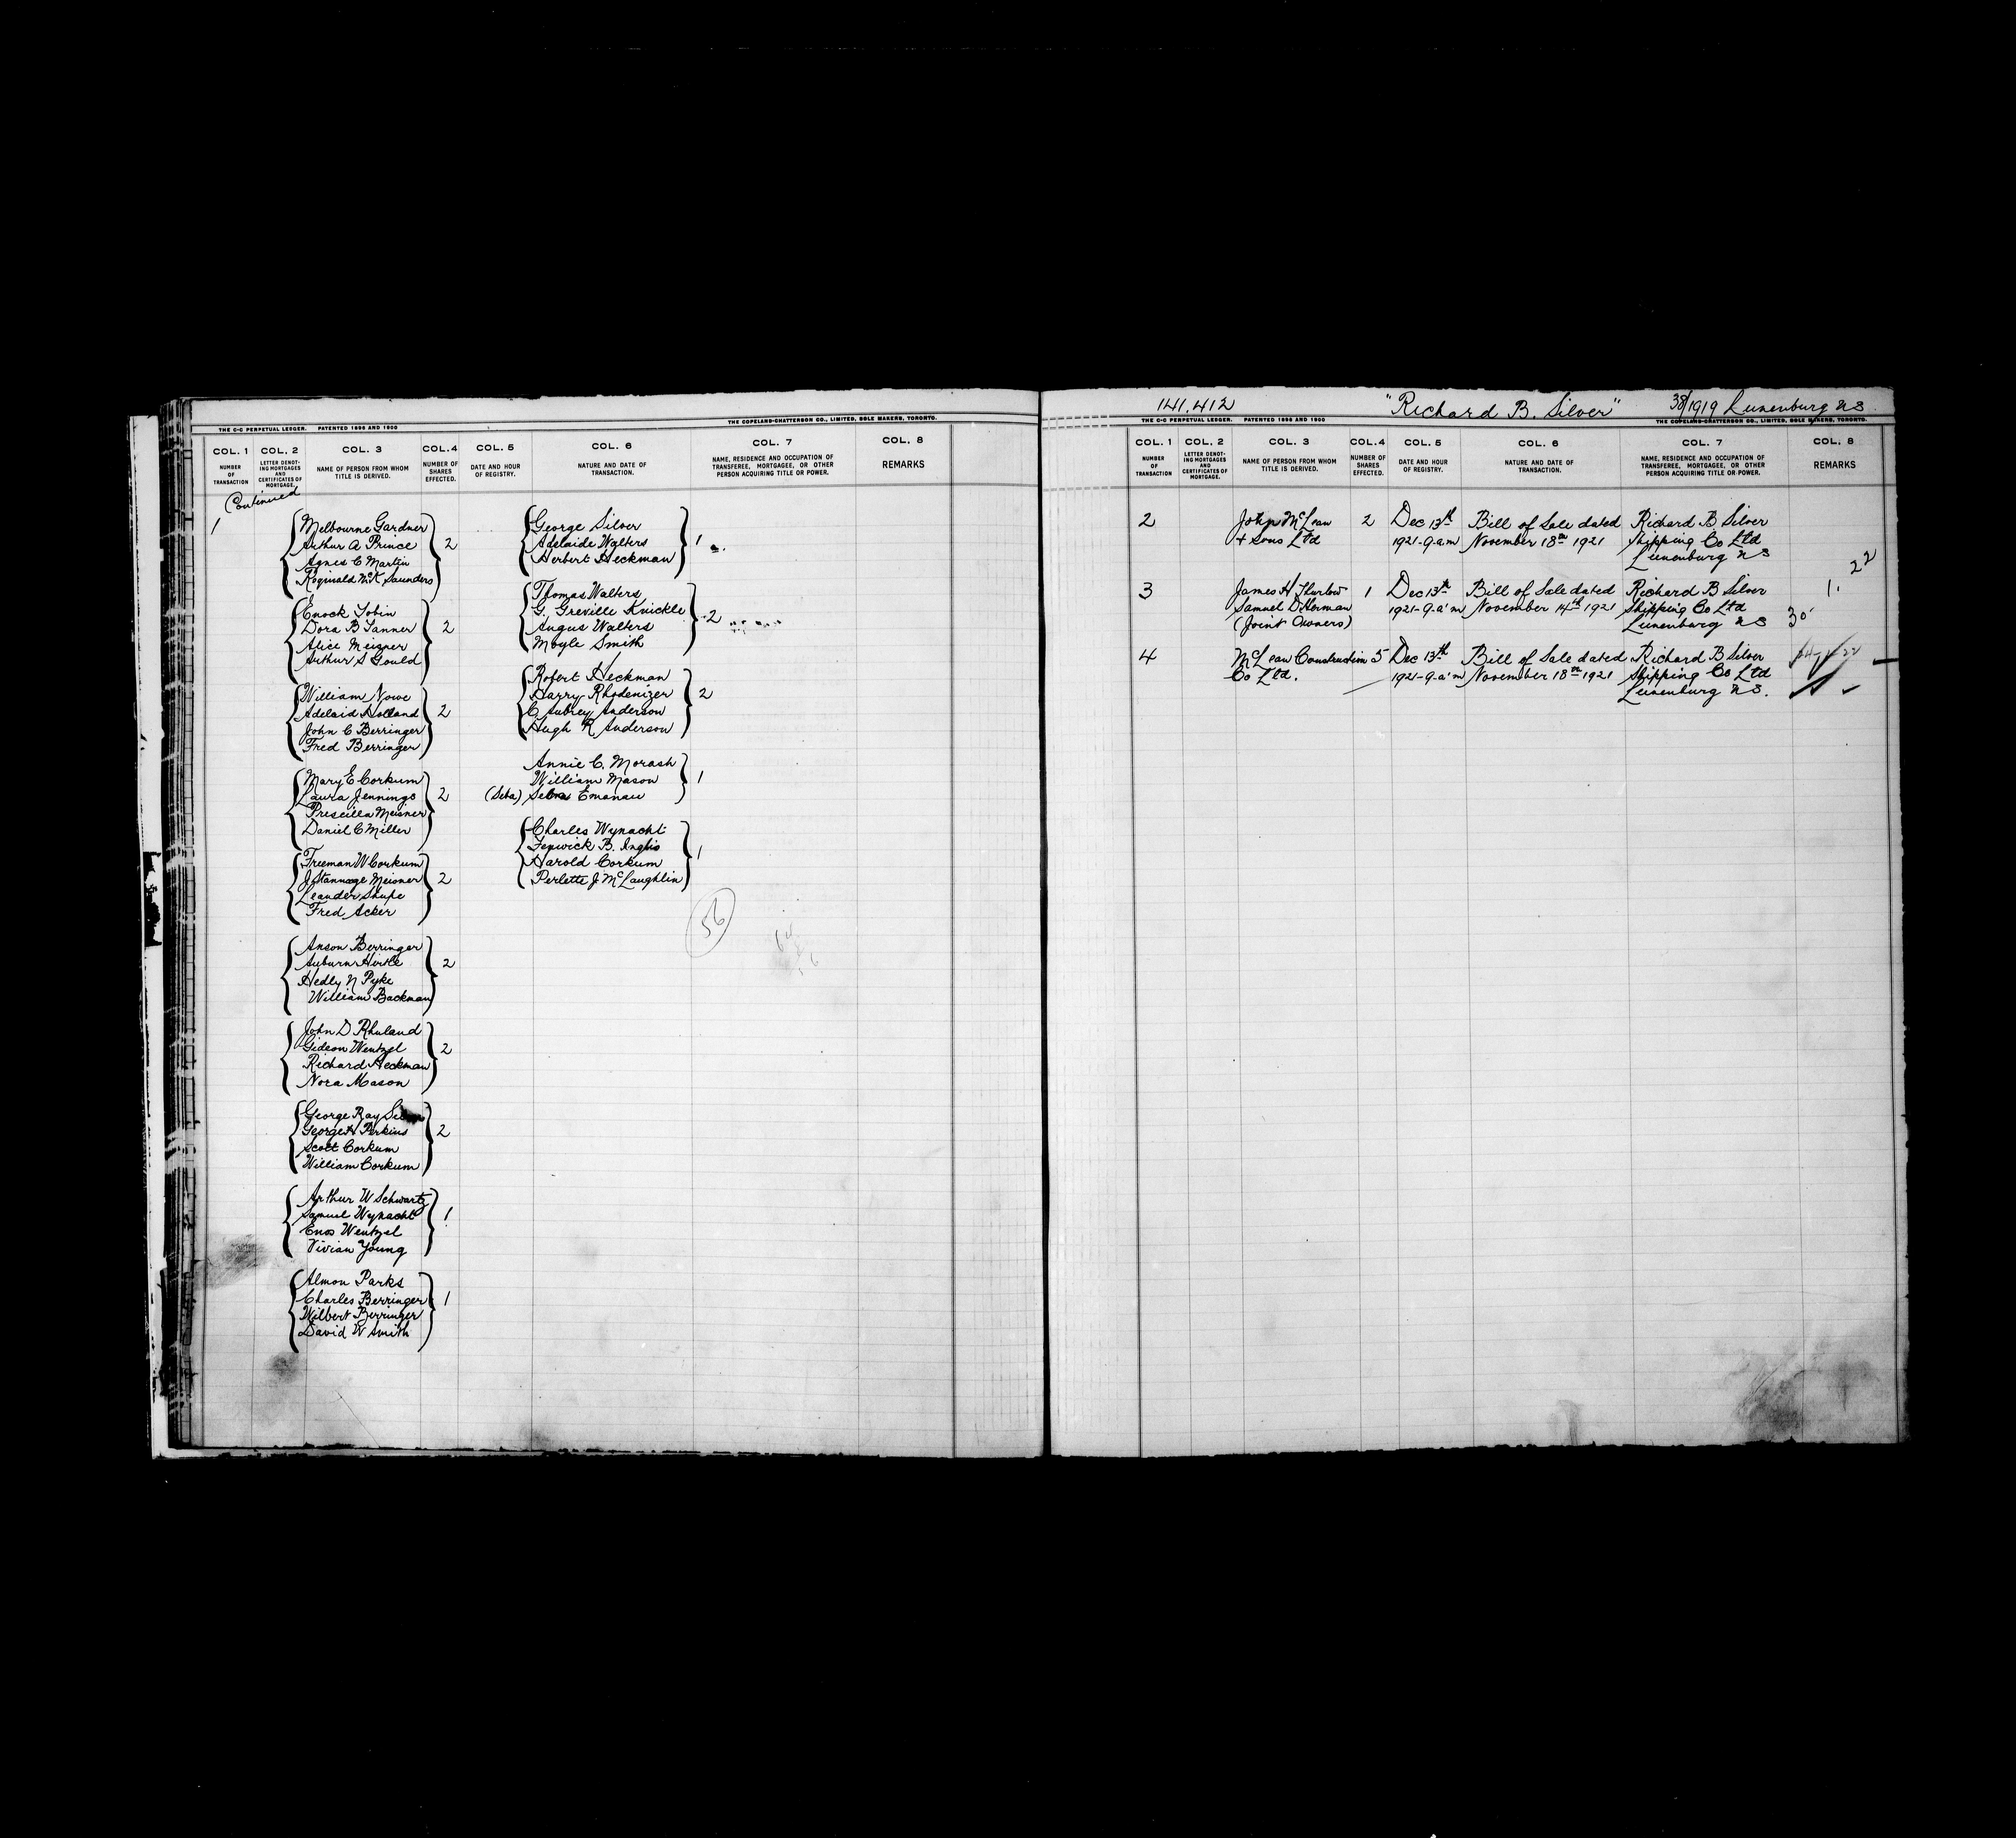 THE C-C PERPETUAL LEDGER. PATENTED 1896 AND 1900
THE COPELAND-CHATTERSON CO., LIMITED, SOLE MAKERS, TORONTO.
COL. 1
NUMBER
OF
TRANSACTION
COL. 2
LETTER DENOT-
ING MORTGAGES
AND
CERTIFICATES OF
MORTGAGE.
COL. 3
NAME OF PERSON FROM WHOM
TITLE IS DERIVED.
COL. 4
NUMBER OF
SHARES
EFFECTED.
COL. 5
DATE AND HOUR
OF REGISTRY.
COL. 6
NATURE AND DATE OF
TRANSACTION.
COL. 7
NAME, RESIDENCE AND OCCUPATION OF
TRANSFEREE, MORTGAGEE, OR OTHER
PERSON ACQUIRING TITLE OR POWER.
COL. 8
REMARKS
Continued
1
Melbourne Gardner
Arthur A Prince
2
Agnes C Martin
Reginald McK Saunders
Enock Tobin
Dora B Tanner
2
Alice Meisner
Arthur S Gould
William Nowe
Adelaid Holland
2
John C Berringer
Fred Berringer
Mary E Corkum
Laura Jennings
2
Priscilla Meisner
Daniel C Miller
Freeman W Corkum
J Stannage Meisner
2
Leander Shupe
Fred Acker
Anson Berringer
Auburn Hirtle
2
Hedly N Pyke
William Backman
John D Rhuland
Gideon Wentzel
2
Richard Heckman
Nora Mason
George Ray
George H Perkins
2
Scott Corkum
William Corkum
Arthur W Schwartz
Samuel Wynacht
1
Enos Wentzel
Vivian Young
Almon Parks
Charles Berringer
1
Wilbert Berringer
David W Smith
George Silver
Adelaide Walters
1
Herbert Heckman
Thomas Walters
G. Greville Knickle
2
Angus Walters
Moyle Smith
Robert Heckman
Harry Rhodenizer
2
C Aubrey Anderson
Hugh R Anderson
Annie C. Morash
William Mason
1
(Seba) Emanau
Charles Wynacht
Fenwick B. Inglis
1
Harold Corkum
Perlette J McLaughlin
56
64
56
141.412
"Richard B. Silver"
38/1919 Lunenburg NS
THE C-C PERPETUAL LEDGER. PATENTED 1896 AND 1900
THE COPELAND-CHATTERSON CO., LIMITED, SOLE MAKERS, TORONTO.
COL. 1
NUMBER
OF
TRANSACTION
COL. 2
LETTER DENOT-
ING MORTGAGES
AND
CERTIFICATES OF
MORTGAGE.
COL. 3
NAME OF PERSON FROM WHOM
TITLE IS DERIVED.
COL. 4
NUMBER OF
SHARES
EFFECTED.
COL. 5
DATE AND HOUR
OF REGISTRY.
COL. 6
NATURE AND DATE OF
TRANSACTION.
COL. 7
NAME, RESIDENCE AND OCCUPATION OF
TRANSFEREE, MORTGAGEE, OR OTHER
PERSON ACQUIRING TITLE OR POWER.
COL. 8
REMARKS
2 John McLean 2 Dec 13th Bill of Sale dated Richard B Silver
+ Sons Ltd 1921-9.a.m November 18th 1921 Shipping Co Ltd
Lunenburg NS
3 James H Thurlow 1 Dec 13th Bill of Sale dated Richard B Silver
Samuel D Herman 1921-9.a.m November 14th 1921 Shipping Co Ltd
(Joint Owners) Lunenburg NS 30
1. 22
4 McLean Construction 5 Dec 13th Bill of Sale dated Richard B Silver
Co Ltd. 1921-9.a.m November 18th 1921 Shipping Co Ltd
Lunenburg NS.